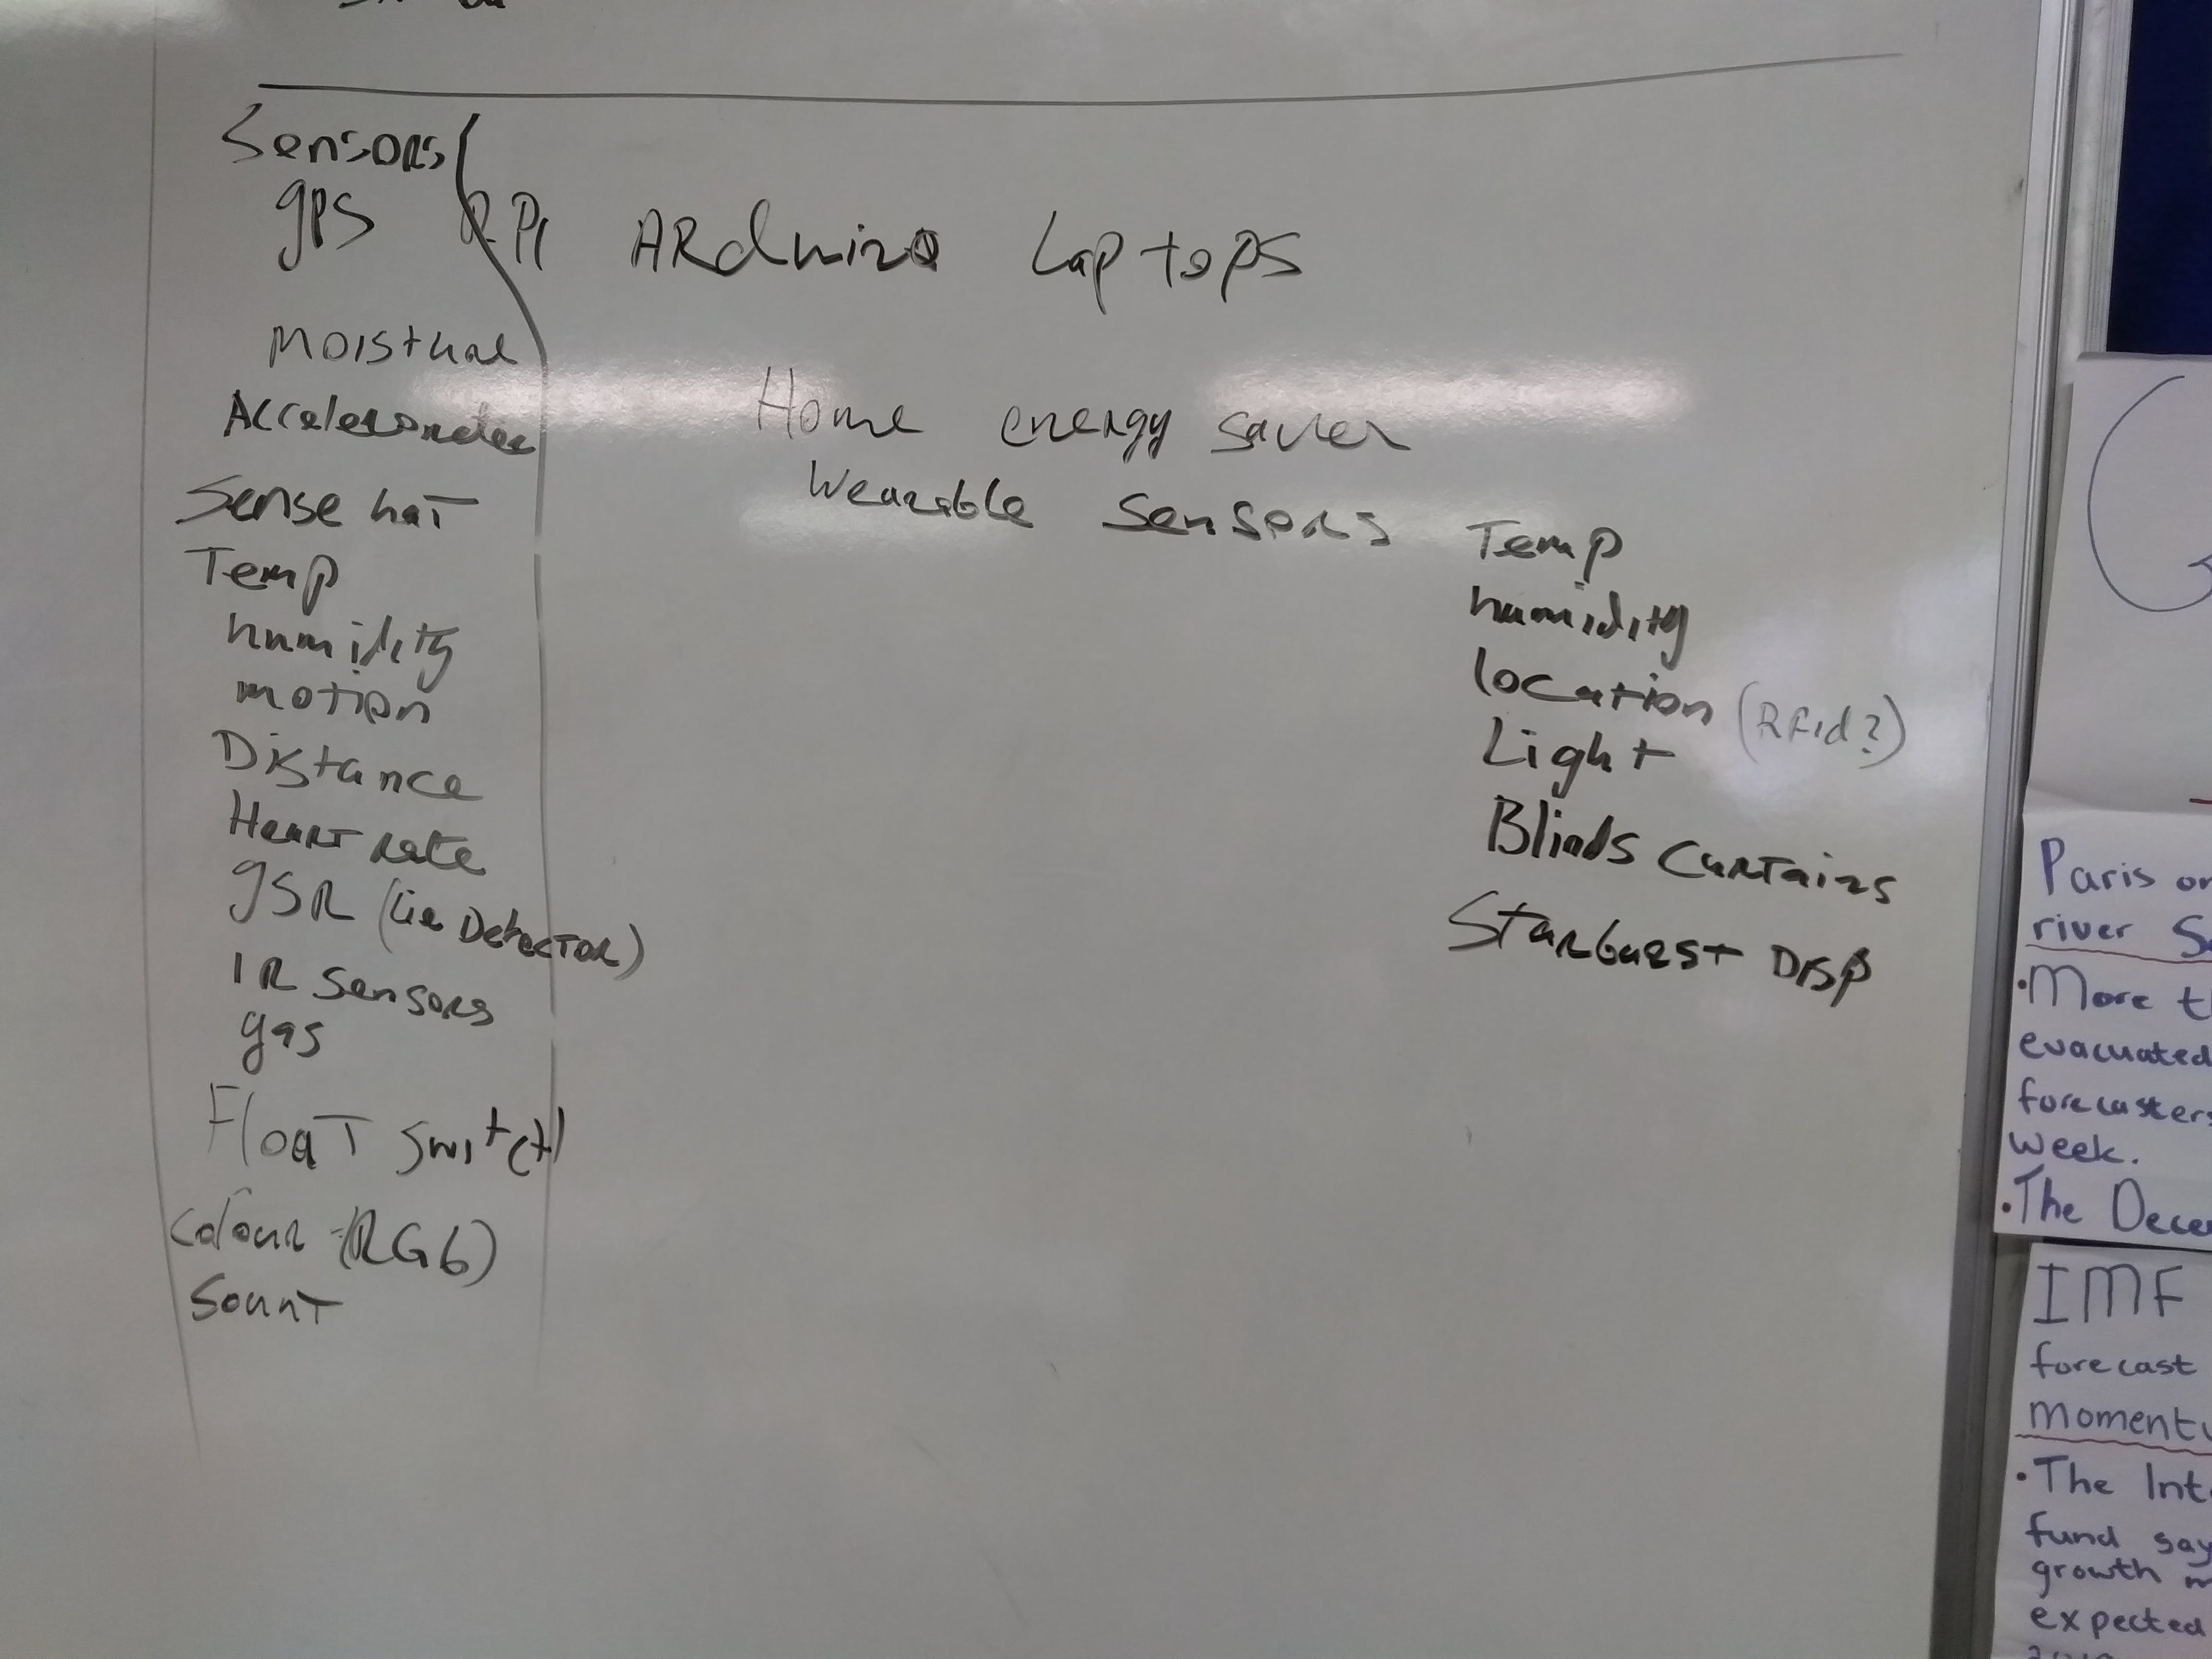 Sensors
gps
RPi Arduino Laptops
Moisture
Accelerometer
Sense hat
Temp
humidity
motion
Distance
Heart rate
gSR (Lie Detector)
IR Sensors
gas
Float switch
Colour (RGb)
Home energy saver
Wearable sensors
Temp
humidity
location (RFid?)
Light
Blinds Curtains
Starburst Disp
Paris
river
• More
evacuated
forecasters
week.
• The
IMF
forecast
• The
fund say
growth
expected